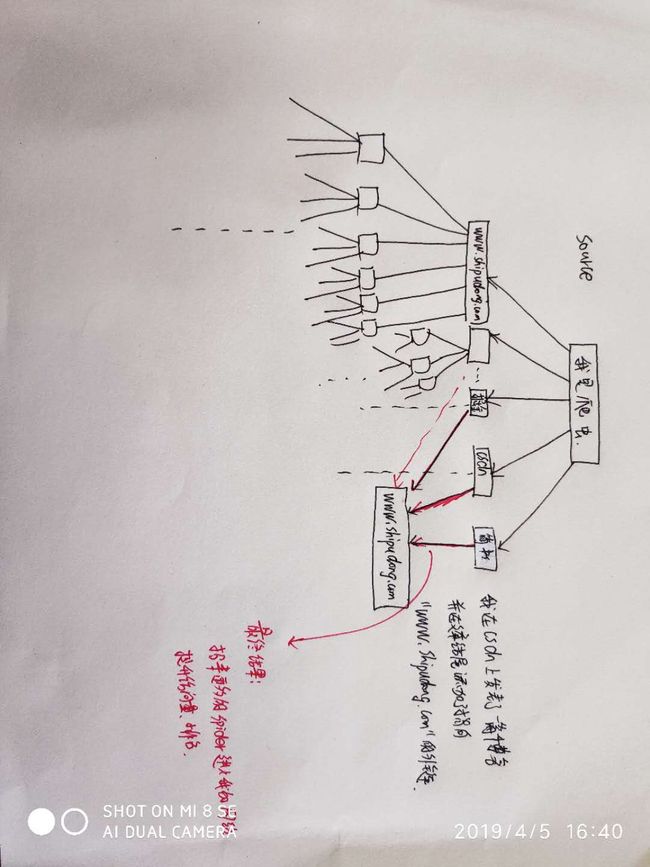 Source
我是爬虫.
www.shipudong.com
csdn
简书
www.shipudong.com
我在csdn上发表了一篇博客
并在文章结尾添加了指向
"www.shipudong.com"的外链.
最终结果:
招来更多的spider进入我的网站
提升访问量、排名.
SHOT ON MI 8 SE
AI DUAL CAMERA
2019/4/5 16:40